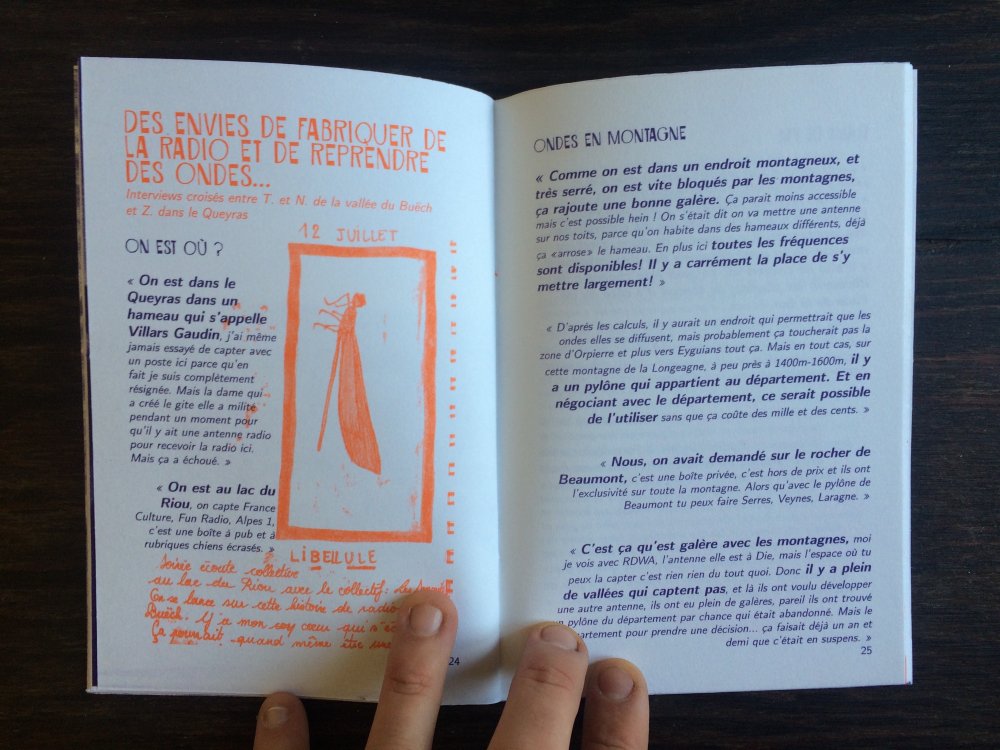 DES ENVIES DE FABRIQUER DE
LA RADIO ET DE REPRENDRE
DES ONDES...
Interviews croisés entre T. et N. de la vallée du Buëch
et Z. dans le Queyras
ON EST OÙ ?
« On est dans le
Queyras dans un
hameau qui s'appelle
Villars Gaudin, j'ai même
jamais essayé de capter avec
un poste ici parce qu'en
fait je suis complétement
résignée. Mais la dame qui
a créé le gite elle a milité
pendant un moment pour
qu'il y ait une antenne radio
pour recevoir la radio ici.
Mais ça a échoué. »
« On est au lac du
Riou, on capte France
Culture, Fun Radio, Alpes 1,
c'est une boîte à pub et à
rubriques chiens écrasés. »
12 JUILLET
LIBELLULE
Soirée écoute collective
au lac du Riou avec le collectif
On se lance sur cette histoire de radio
Buëch. Y'a mon coy cœur qui
Ça pourrait quand même être une
24
ONDES EN MONTAGNE
« Comme on est dans un endroit montagneux, et
très serré, on est vite bloqués par les montagnes,
ça rajoute une bonne galère. Ça parait moins accessible
mais c'est possible hein ! On s'était dit on va mettre une antenne
sur nos toits, parce qu'on habite dans des hameaux différents, déjà
ça «arrose» le hameau. En plus ici toutes les fréquences
sont disponibles! Il y a carrément la place de s'y
mettre largement! »
« D'après les calculs, il y aurait un endroit qui permettrait que les
ondes elles se diffusent, mais probablement ça toucherait pas la
zone d'Orpierre et plus vers Eyguians tout ça. Mais en tout cas, sur
cette montagne de la Longeagne, à peu près à 1400m-1600m, il y
a un pylône qui appartient au département. Et en
négociant avec le département, ce serait possible
de l'utiliser sans que ça coûte des mille et des cents. »
« Nous, on avait demandé sur le rocher de
Beaumont, c'est une boîte privée, c'est hors de prix et ils ont
l'exclusivité sur toute la montagne. Alors qu'avec le pylône de
Beaumont tu peux faire Serres, Veynes, Laragne. »
« C'est ça qu'est galère avec les montagnes, moi
je vois avec RDWA, l'antenne elle est à Die, mais l'espace où tu
peux la capter c'est rien rien du tout quoi. Donc il y a plein
de vallées qui captent pas, et là ils ont voulu développer
une autre antenne, ils ont eu plein de galères, pareil ils ont trouvé
un pylône du département par chance qui était abandonné. Mais le
département pour prendre une décision... ça faisait déjà un an et
demi que c'était en suspens. »
25